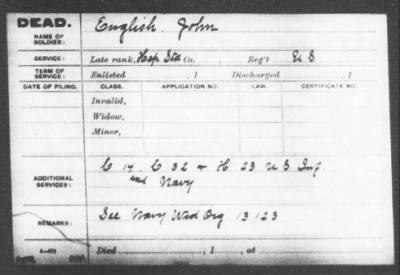 DEAD.
English John
NAME OF SOLDIER:
SERVICE: Late rank, Hsp Std Co. , Reg't U S
TERM OF SERVICE: Enlisted , 1 Discharged , 1
DATE OF FILING. CLASS. APPLICATION NO. LAW. CERTIFICATE NO.
Invalid,
Widow,
Minor,
ADDITIONAL SERVICES: C 14. C 32 + H 23 U S Inf
and Navy
REMARKS: See Navy Wid Org 13123
Died , 1 , at